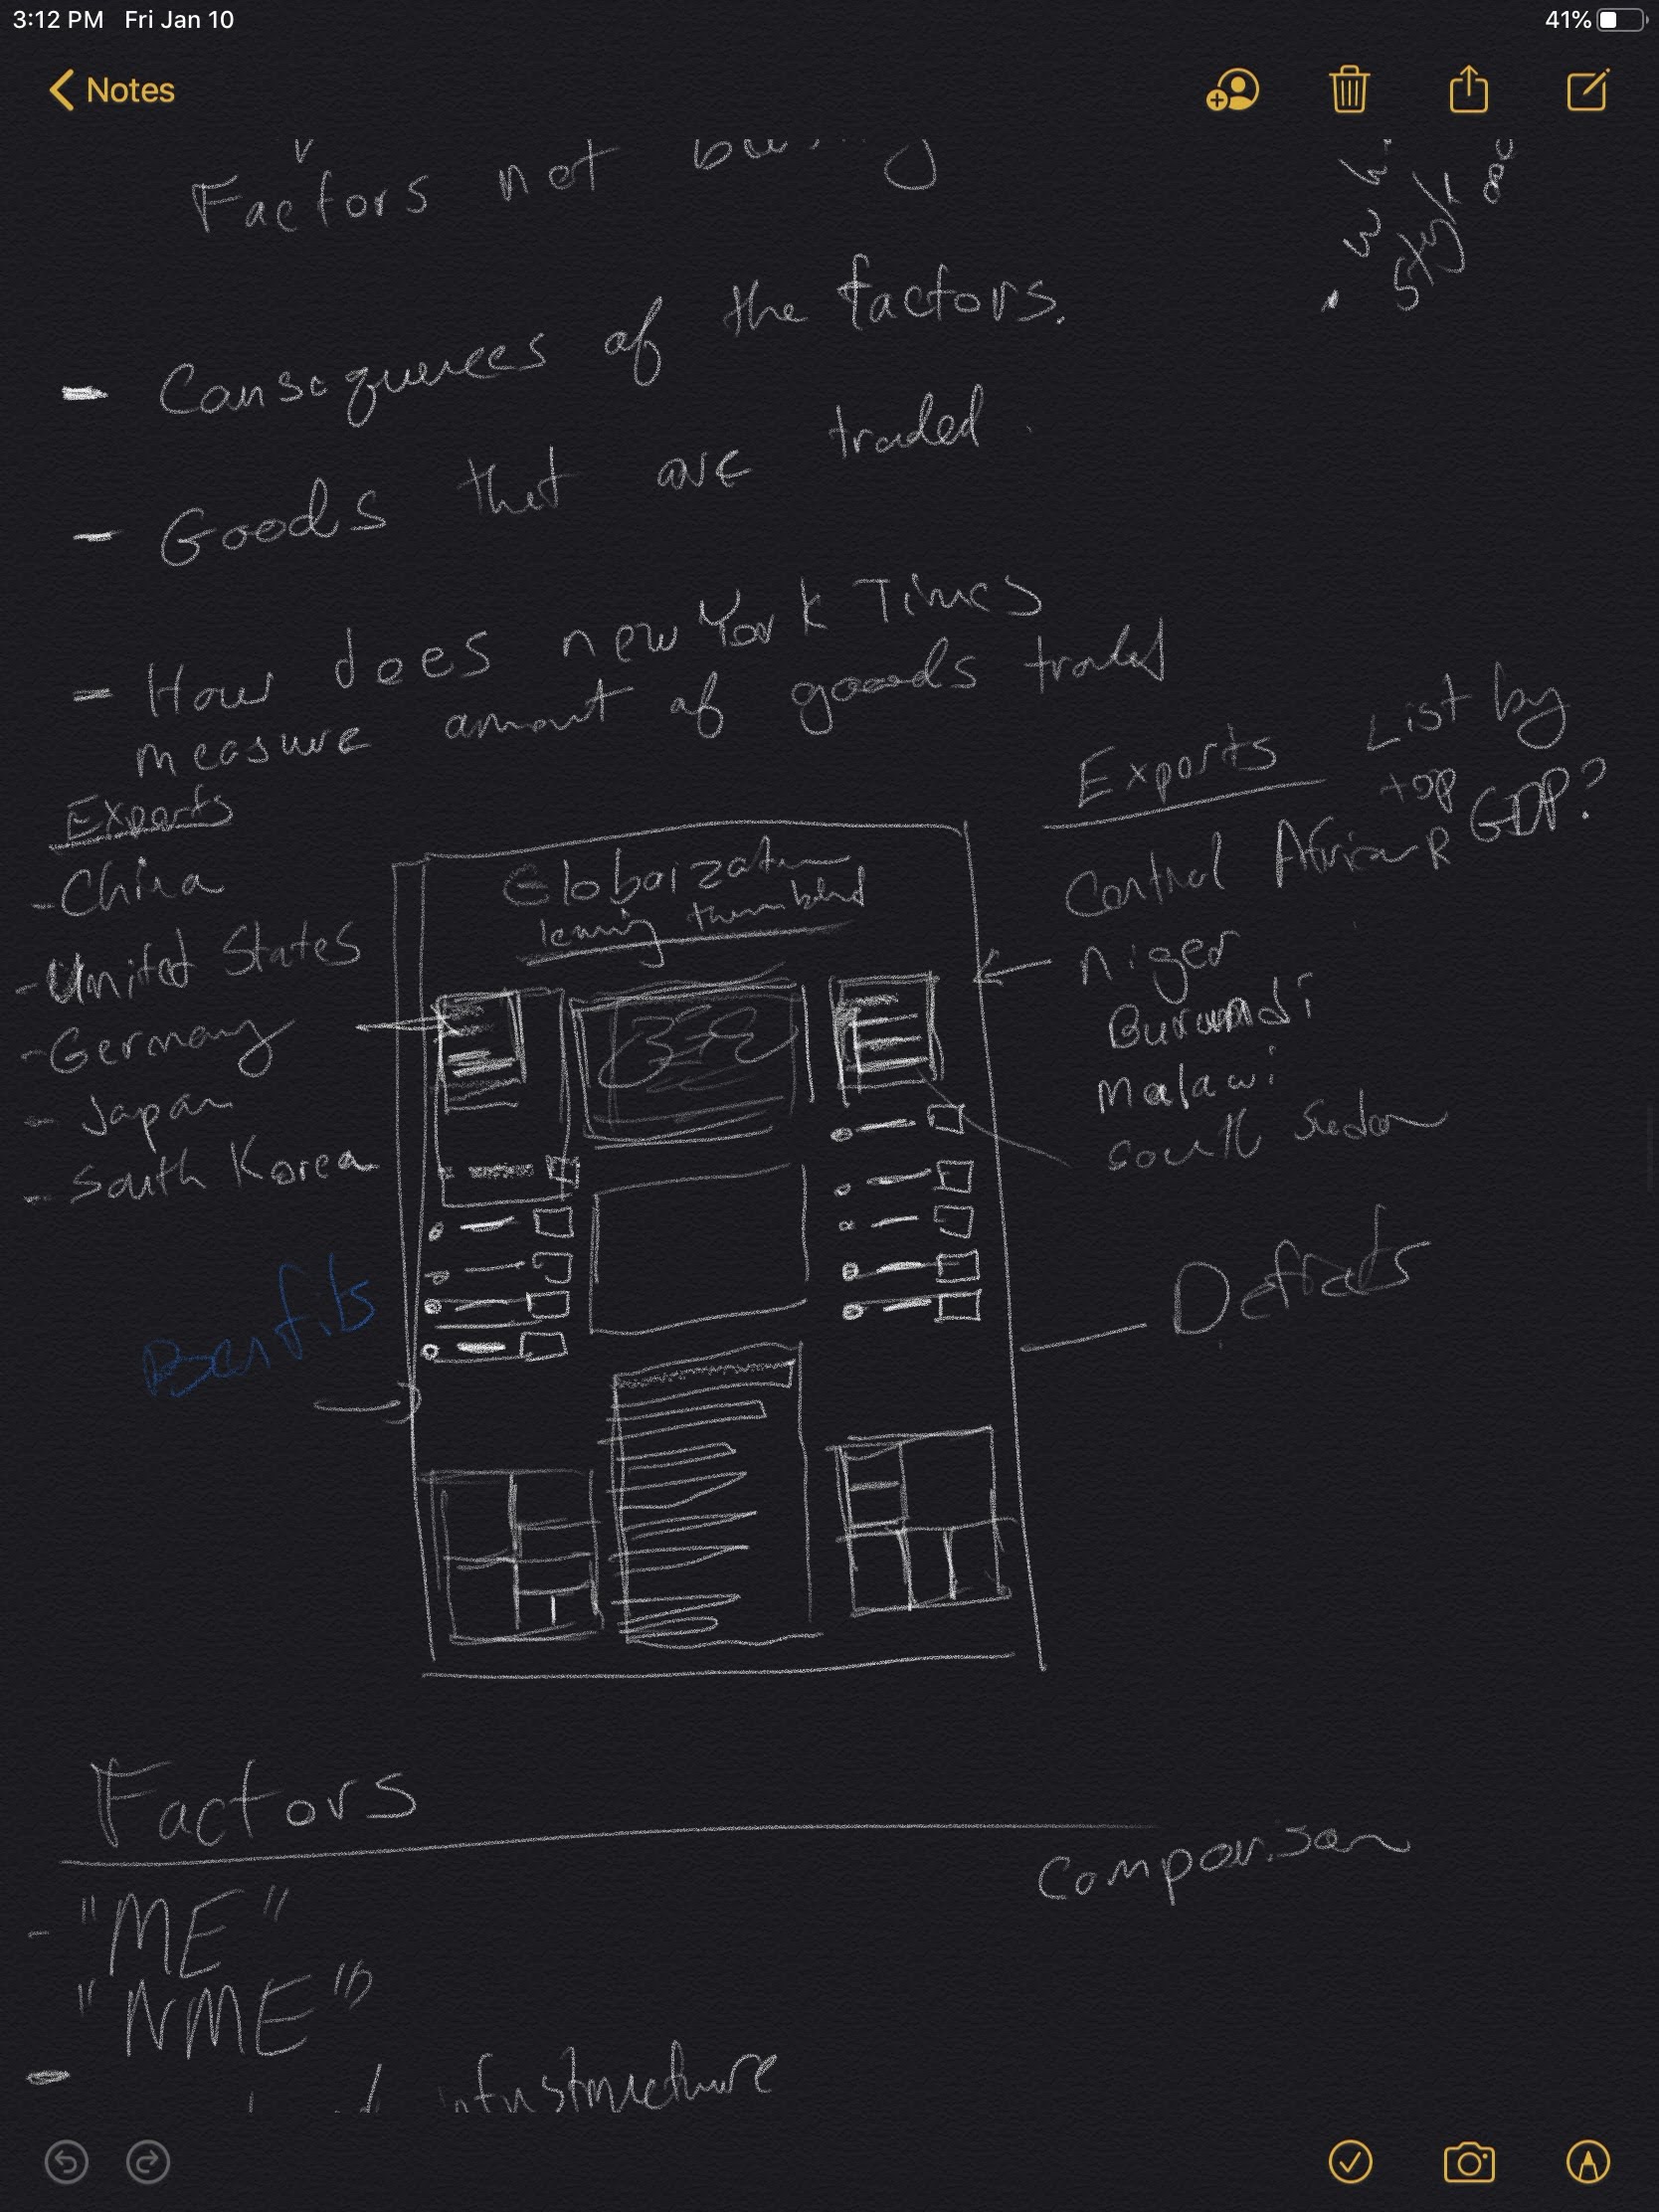 3:12 PM Fri Jan 10
41%
Notes
Factors not
- Consequences of the factors.
- Goods that are traded.
- How does new York Times
measure amount of goods traded
Exports
- China
- United States
- Germany
- Japan
- South Korea
Exports
List by
top
GDP?
Central African R
Niger
Burundi
Malawi
South Sudan
Benfits
Factors
Comparison
- "ME"
"NME"
-